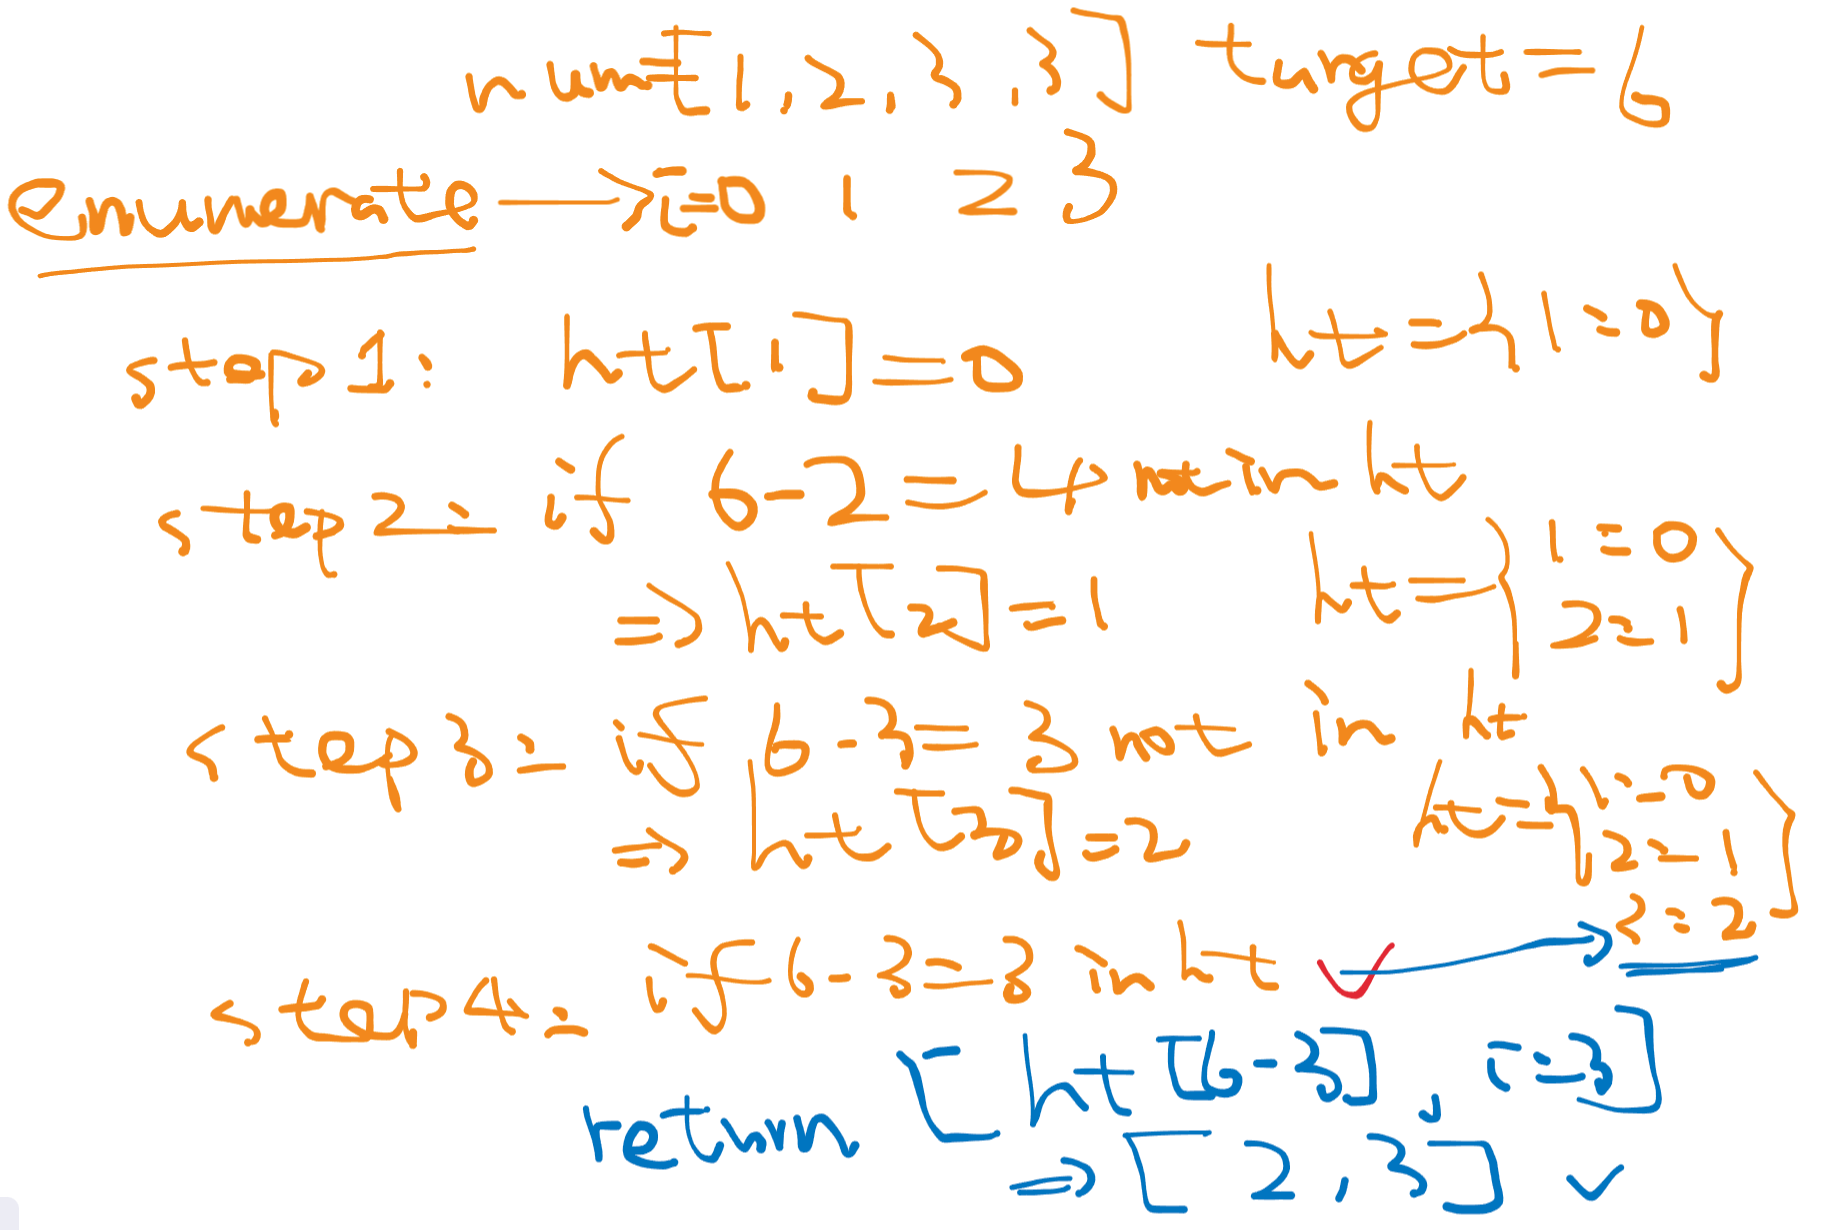 num=[1,2,3,3] target=6
enumerate → i=0 1 2 3
step1: ht[1]=0 ht={1:0}
step2: if 6-2=4 not in ht
⇒ ht[2]=1 ht={1:0
2:1}
step3: if 6-3=3 not in ht
⇒ ht[3]=2 ht={1:0
2:1
3:2}
step4: if 6-3=3 in ht ✓ →
return [ht[6-3], i=3]
⇒ [2,3] ✓